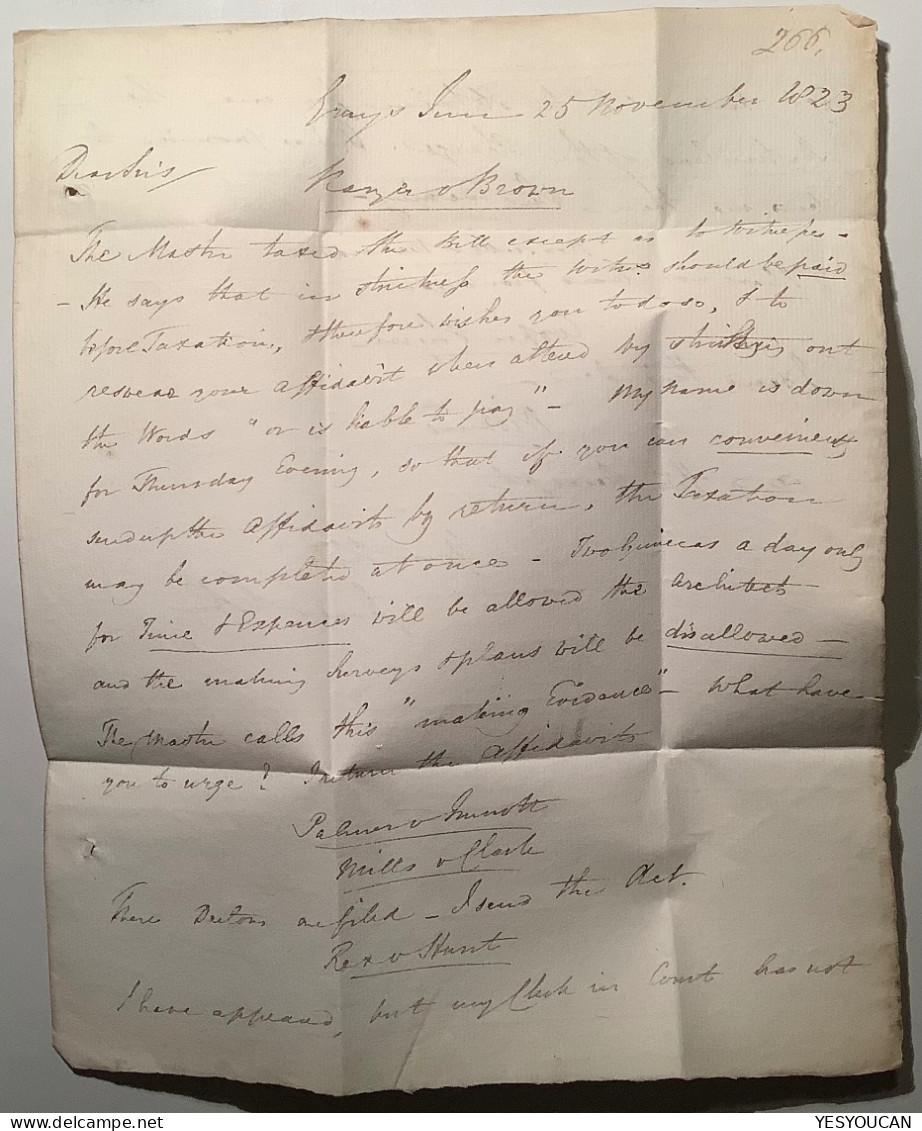 266.
Grays Inn 25 November 1823
Dear Sirs
v Brown
The Master taxed the Bill except as to Witnesses -
- He says that in strictness the Witns should be paid
before Taxation, & therefore wishes you to do so, & to
reswear your Affidavit when altered by striking out
the Words "or is liable to pay" - My Name is down
for Thursday Evening, so that if you can conveniently
send up the Affidavits by return, the Taxation
may be completed at once - Two Guineas a day only
for Time & Expences will be allowed the Architect
and the making Surveys & plans will be disallowed -
The Master calls this "making Evidence" - What have
you to urge? I return the Affidavits
Palmer v
Mills v Clark
These are filed - I send the Act.
Rex v Hunt
I have appeared, but my Clerk in Court has not
YESYOUCAN